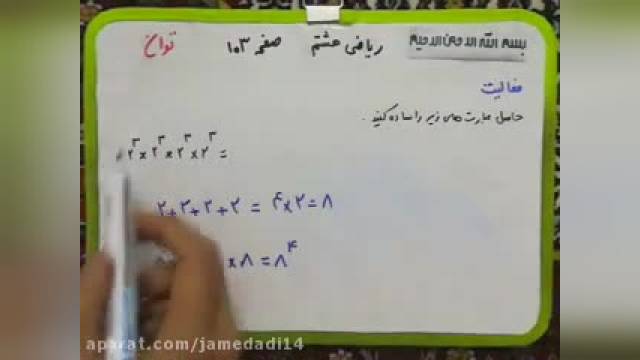 بسم الله الرحمن الرحیم ریاضی هشتم صفحه ۱۰۳ توان
فعالیت
حاصل عبارت های زیر را ساده کنید .
۲^۳ × ۲^۳ × ۲^۳ × ۲^۳ =
۲+۲+۲+۲ = ۴×۲=۸
×۸=۸^۴
aparat.com/jamedadi14